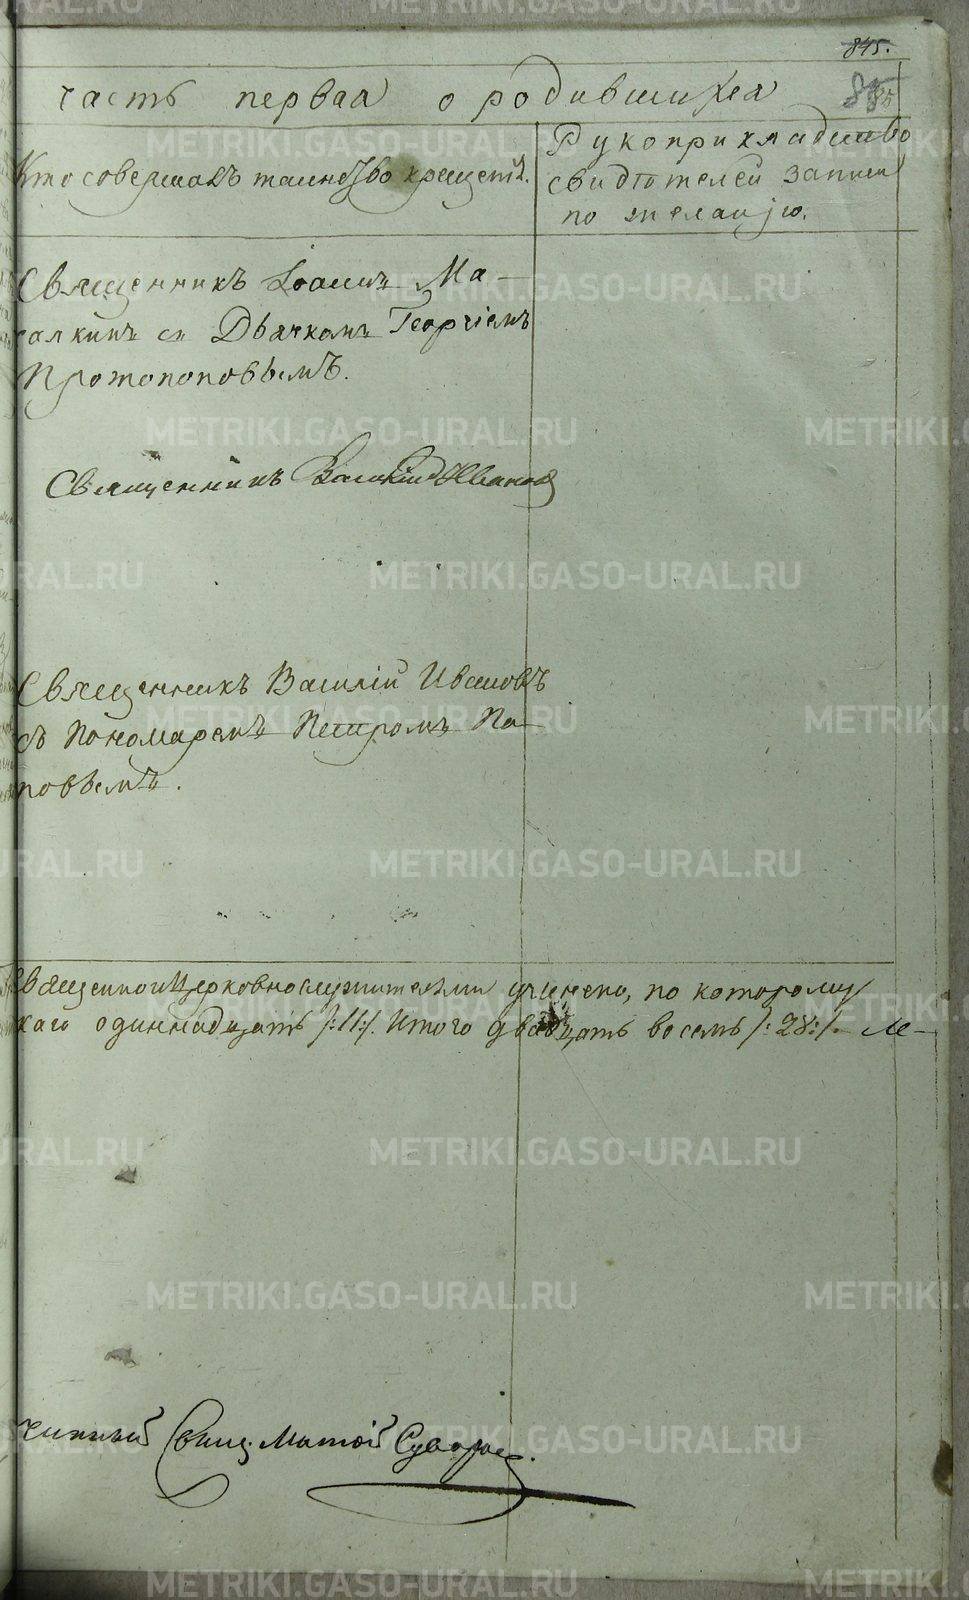 845.
часть первая о родившихся
85
Кто совершалъ таинство крещенія.
Рукоприкладство
свидѣтелей записи
по желанію.
Священникъ Іоаннъ Ма-
калкинъ съ Дьячкомъ Георгіемъ
Протопоповымъ.
Священникъ Василій Ивановъ
Священникъ Василій Ивановъ
съ Пономаремъ Петромъ По-
повымъ.
Священноцерковнослужителями учинено, по которому
каго одиннадцать /:11:/. Итого двадцать восемь /:28:/. М-
чинный Свящ. Матѳій Суворов.
METRIKI.GASO-URAL.RU